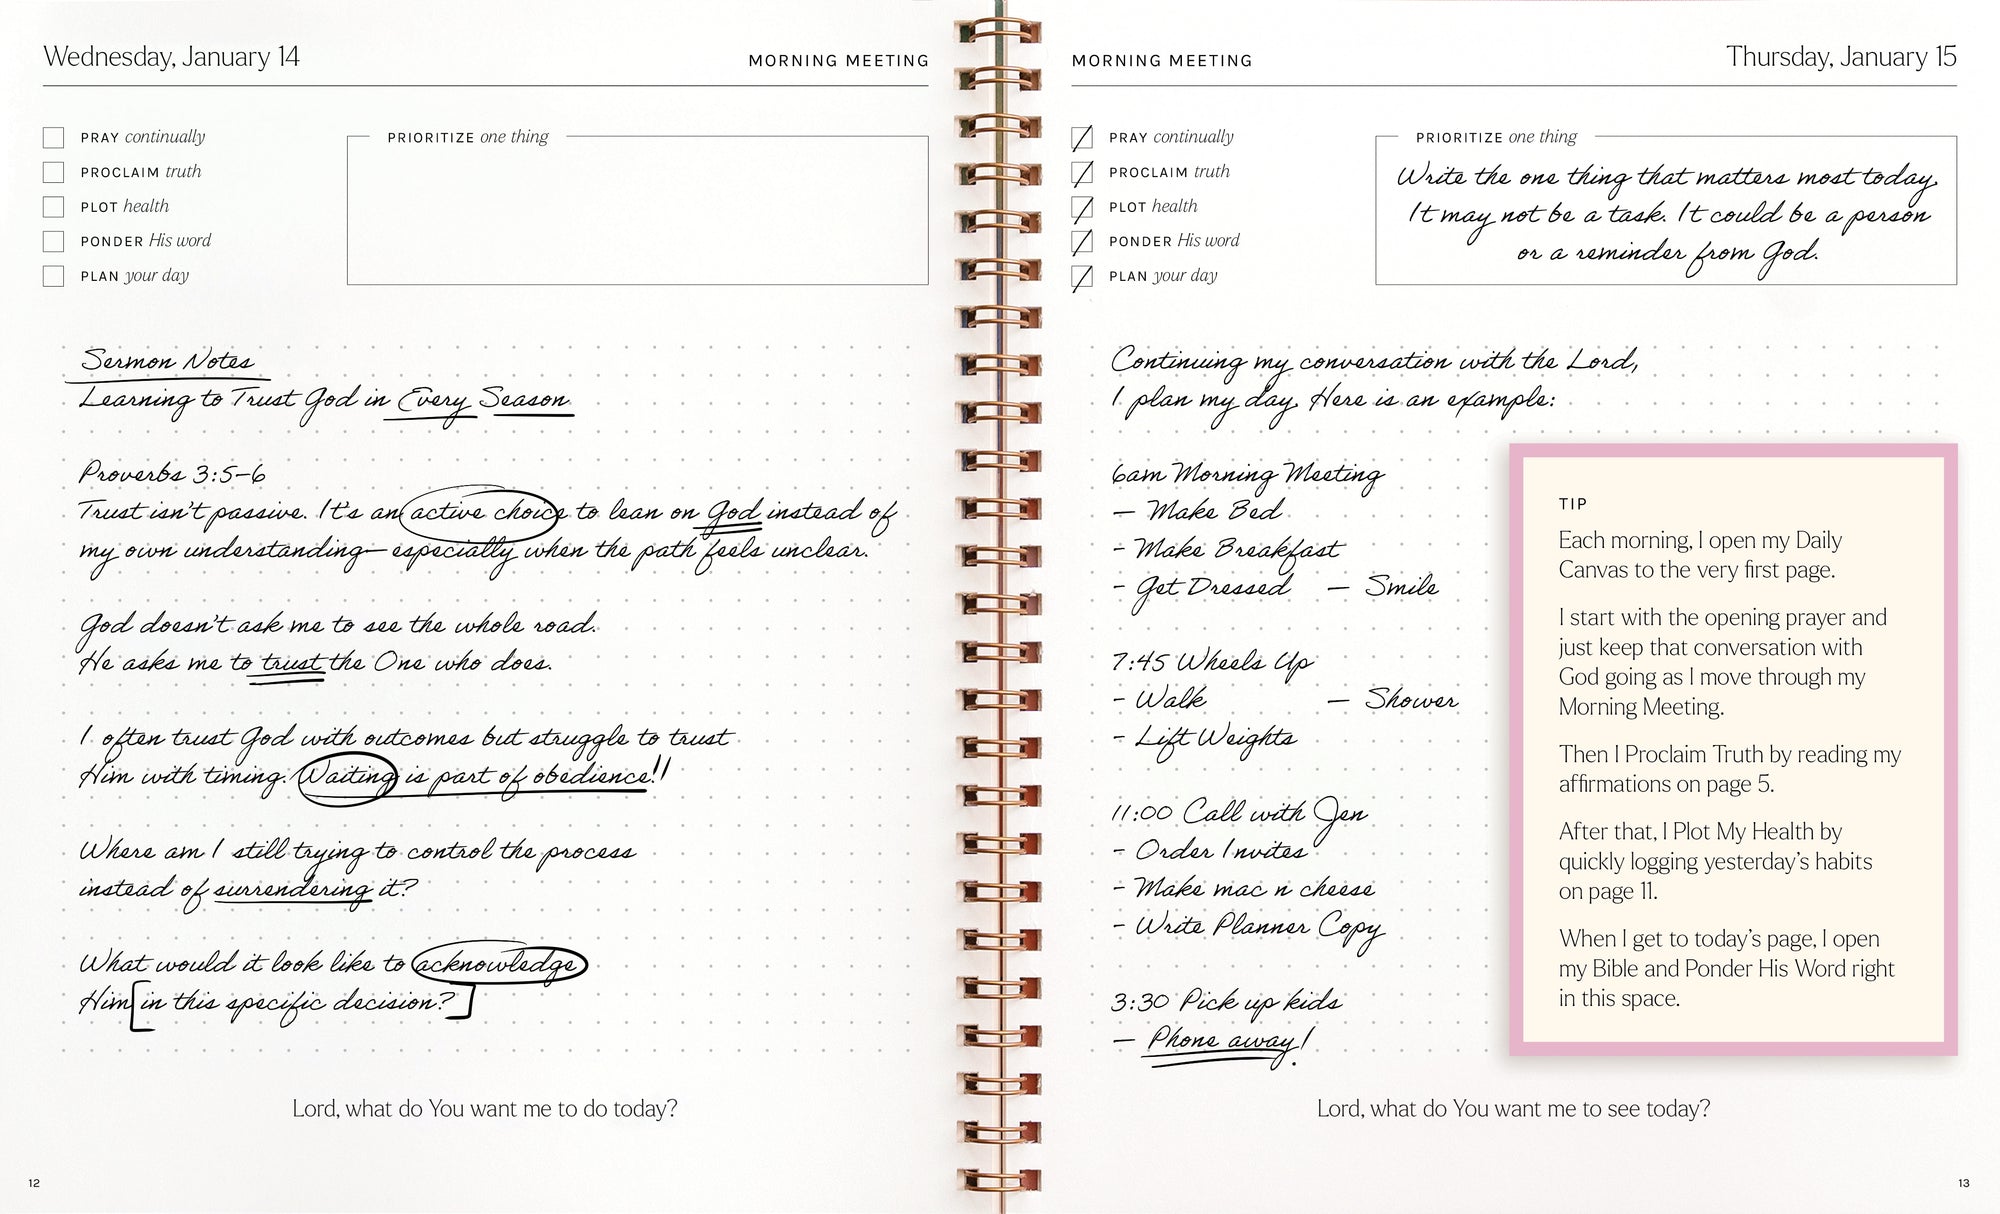 Wednesday, January 14
MORNING MEETING
PRAY continually
PROCLAIM truth
PLOT health
PONDER His word
PLAN your day
PRIORITIZE one thing
Sermon Notes
Learning to Trust God in Every Season
Proverbs 3:5–6
Trust isn't passive. It's an active choice to lean on God instead of
my own understanding—especially when the path feels unclear.
God doesn't ask me to see the whole road.
He asks me to trust the One who does.
I often trust God with outcomes but struggle to trust
Him with timing. Waiting is part of obedience!!
Where am I still trying to control the process
instead of surrendering it?
What would it look like to acknowledge
Him [in this specific decision?]
Lord, what do You want me to do today?
12
MORNING MEETING
Thursday, January 15
PRAY continually
PROCLAIM truth
PLOT health
PONDER His word
PLAN your day
PRIORITIZE one thing
Write the one thing that matters most today.
It may not be a task. It could be a person
or a reminder from God.
Continuing my conversation with the Lord,
I plan my day. Here is an example:
6am Morning Meeting
— Make Bed
- Make Breakfast
- Get Dressed — Smile
7:45 Wheels Up
- Walk — Shower
- Lift Weights
11:00 Call with Jen
- Order Invites
- Make mac n cheese
- Write Planner Copy
3:30 Pick up kids
— Phone away!
TIP
Each morning, I open my Daily
Canvas to the very first page.
I start with the opening prayer and
just keep that conversation with
God going as I move through my
Morning Meeting.
Then I Proclaim Truth by reading my
affirmations on page 5.
After that, I Plot My Health by
quickly logging yesterday's habits
on page 11.
When I get to today's page, I open
my Bible and Ponder His Word right
in this space.
Lord, what do You want me to see today?
13